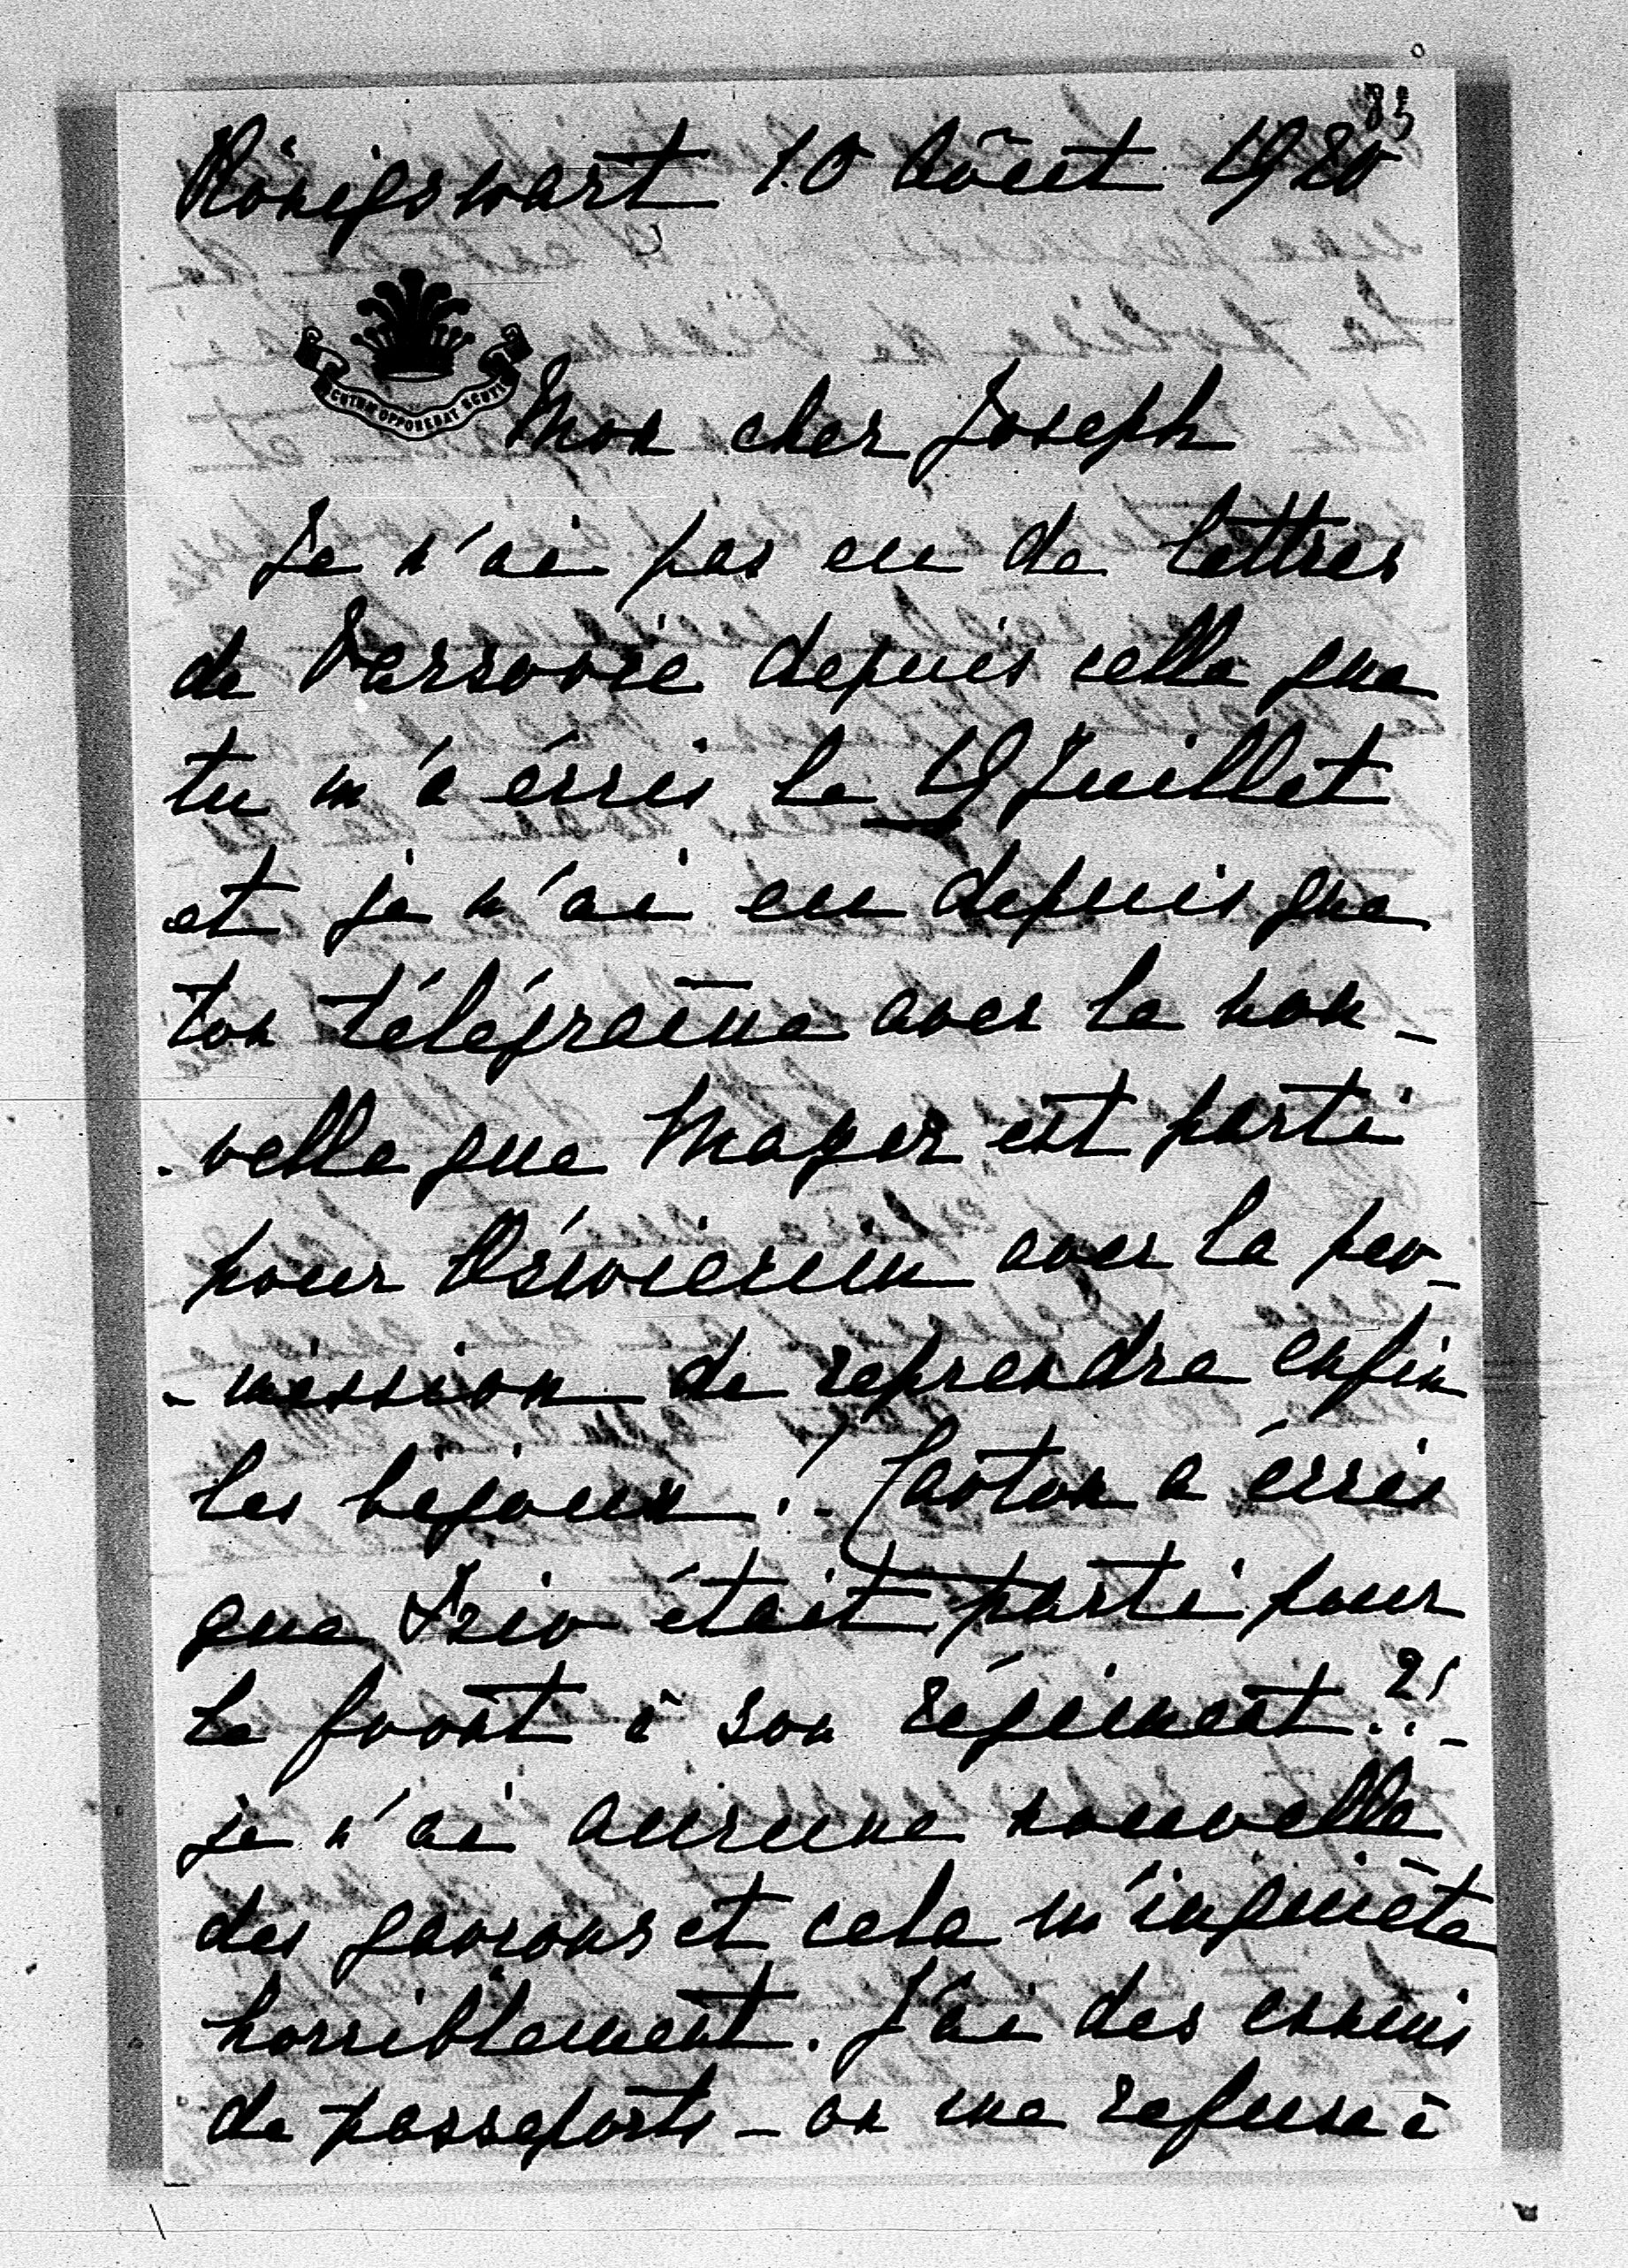 83
Königswart 10 Aôut 1920
SCUTUM OPPONEBAT SCUTIS
Mon cher Joseph
Je n'ai pas eu de lettres
de Varsovie depuis celle que
tu m'a écris le 19 Juillet
et je n'ai eu depuis que
ton télégrame avec la nou-
-velle que Mager est parti
pour avec la per-
-mission de reprendre enfin
les bijoux! - Gaston a écris
que Izio était parti pour
le front à son régiment?! -
je n'ai aucune nouvelle
des garçons et cela m'inquiète
horriblement. J'ai des ennuis
de passeports - on me refuse à